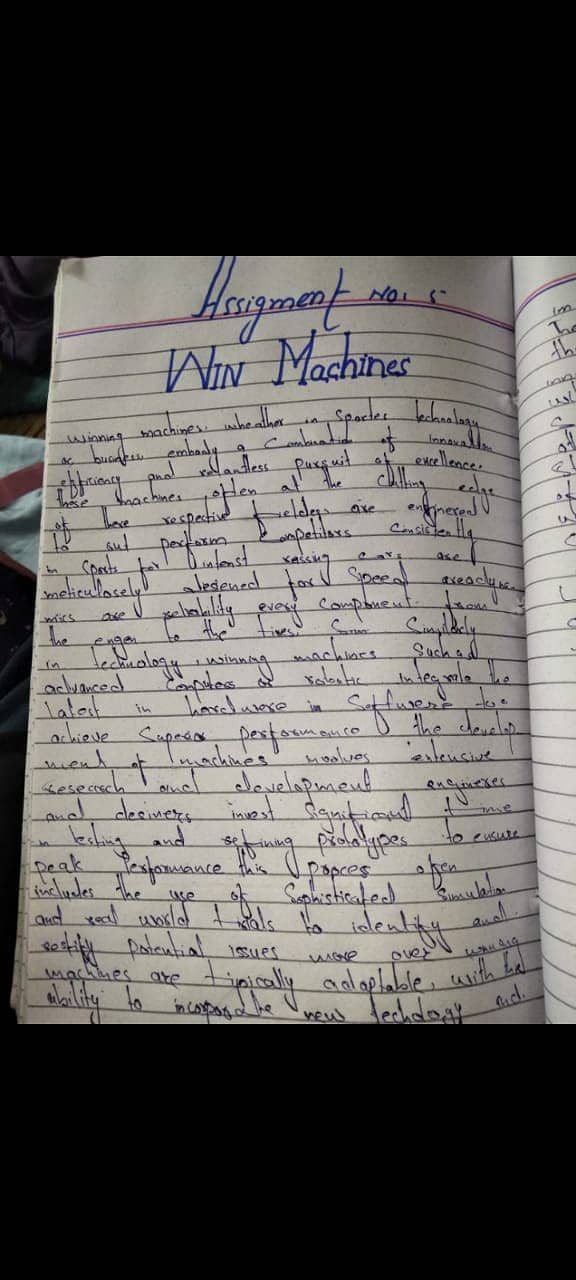 Assigment No. 5
WIN Machines
winning machines. wheather in Sportes technology
or business embody a Combination of innovation
efficiency and relantless Pursuit of excellence.
these machines often at the Cutting edge
of there respective fields are enginered
to out perform Competitors Consistently
in Sports for intenst rassing Cars are
meticulously desiened for Speed areodyna
mics are reliability every Compoment. from
the engen to the tires. Similerly
in technology, winning machines Such ad
advanced Computers or robotic Integrate the
latest in hardwere in Softwere to
achieve Superior performance the develop
ment of machines nvolves extensive
research and development engineres
and desiners invest Significant time
in testing and refining prototypes to ensure
peak Performance this proces ofen
includes the use of Sophisticated Simulation
and real world trials to identify and
restify potential issues more over winning
machines are tipically adaptable, with the
ability to incorporate new techdogy and.